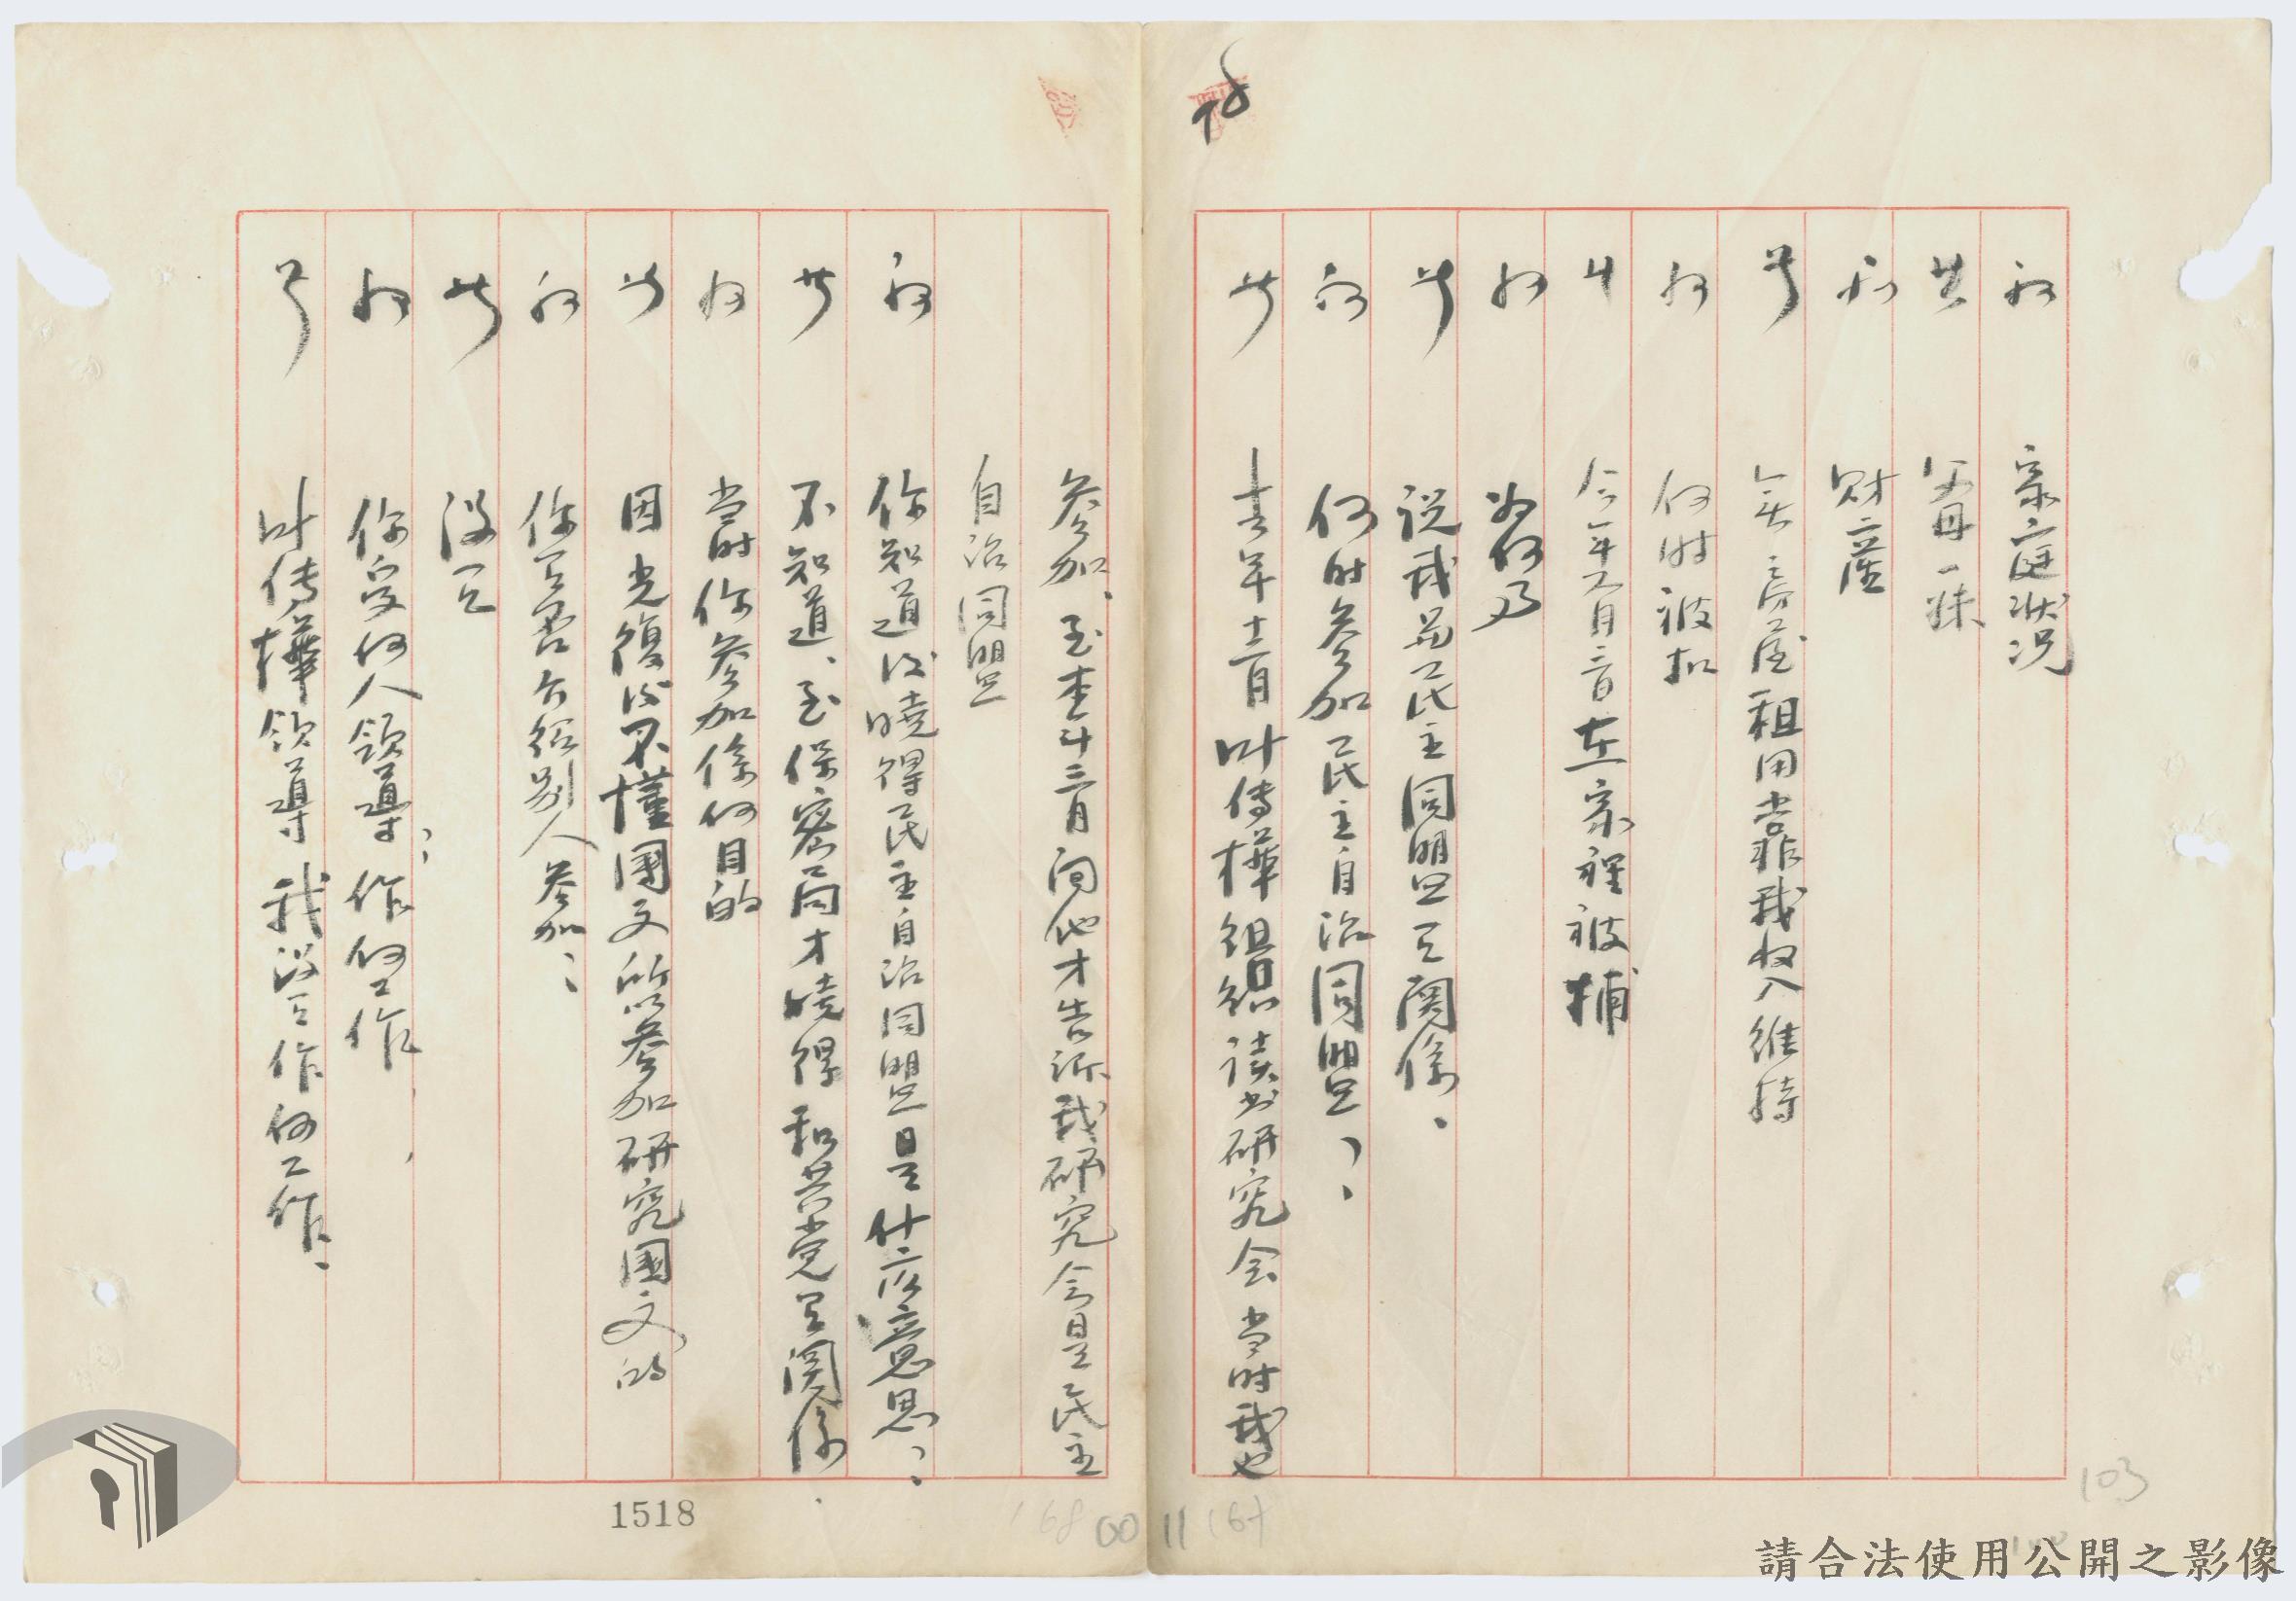 78
問 家庭狀況
答 父母一妹
問 財產
答 無房屋租用 我收入維持
問 何時被扣
答 今年 月 在家裡被捕
問 為何事
答 説我與民主同盟有関係、
問 何時參加民主自治同盟、、
答 去年十二月叶傳樺組織讀书研究会当時我也
參加、至本年三月间他才告訴我研究会是民主
自治同盟
問 你知道後曉得民主自治同盟是什広意思、、
答 不知道、至保密局才曉得和共党有関係
問 当時你參加係何目的
答 因光復後不懂國文所以參加研究國文的
問 你有否介紹別人參加、、
答 沒有
問 你受何人領導、、作何工作
答 叶傳樺領導 我沒有作何工作、
1518
168
00 11
167
103
請合法使用公開之影像